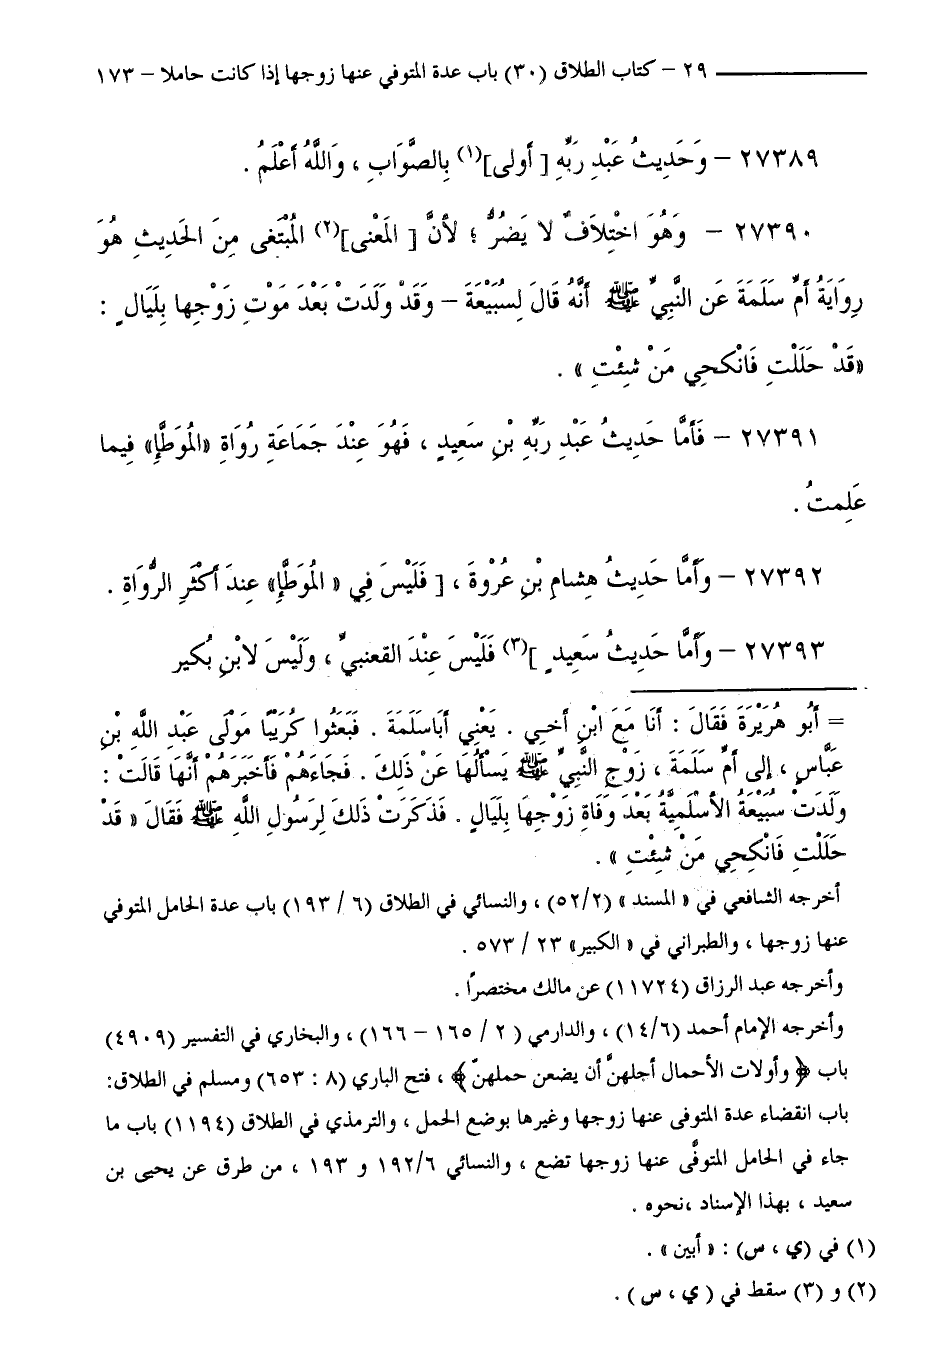 ٢٩ – كتاب الطلاق (٣٠) باب عدة المتوفي عنها زوجها إذا كانت حاملا – ١٧٣
٢٧٣٨٩ – وَحَدِيثُ عَبْدِ رَبِّهِ [ أولى](١) بِالصَّوَابِ ، وَاللَّهُ أَعْلَمُ .
٢٧٣٩٠ – وَهُوَ اخْتِلَافٌ لا يَضُرُّ ؛ لأنَّ [ المَعْنى](٢) المُبْتَغى مِنَ الحَدِيثِ هُوَ
رِوَايَةُ أُمِّ سَلَمَةَ عَنِ النَّبِيِّ ﷺ أَنَّهُ قَالَ لِسُبَيْعَةَ – وَقَدْ وَلَدَتْ بَعْدَ مَوْتِ زَوْجِها بِلَيَالٍ :
«قَدْ حَلَلْتِ فَانْكحِي مَنْ شِئْتِ » .
٢٧٣٩١ – فَأَمَّا حَدِيثُ عَبْدِ رَبِّهِ بْنِ سَعِيدٍ ، فَهُوَ عِنْدَ جَمَاعَةِ رُوَاةِ «المُوَطَّإِ» فِيما
عَلِمتُ .
٢٧٣٩٢ – وَأَمَّا حَدِيثُ هِشامِ بْنِ عُرْوةَ ، [ فَلَيْسَ فِي « المُوَطَّإِ» عِندَ أَكْثَرِ الرُّوَاةِ .
٢٧٣٩٣ – وَأَمَّا حَدِيثُ سَعِيدٍ ](٣) فَلَيْسَ عِنْدَ القعنبيِّ ، وَلَيْسَ لابْنِ بُكير
= أَبُو هُرَيْرَةَ فَقَالَ : أَنَا مَعَ ابْنِ أَخِي . يَعْنِي أَبَاسَلَمَةَ . فَبَعَثُوا كُرَيْبًا مَوْلَى عَبْدِ اللَّهِ بْنِ
عَبَّاسٍ ، إلى أُمِّ سَلَمَةَ ، زَوْجِ النَّبِيِّ ﷺ يَسْأَلُهَا عَنْ ذَلِكَ . فَجَاءَهُمْ فَأَخْبَرَهُمْ أَنَّهَا قَالَتْ :
وَلَدَتْ سُبَيْعَةُ الأَسْلَمِيَّةُ بَعْدَ وَفَاةِ زَوْجِهَا بِلَيَالٍ . فَذَكَرَتْ ذَلِكَ لِرَسُولِ اللَّهِ ﷺ فَقَالَ « قَدْ
حَلَلْتِ فَانْكِحِي مَنْ شِئْتِ » .
أخرجه الشافعي في « المسند » (٥٢/٢) ، والنسائي في الطلاق (٦ / ١٩٣) باب عدة الحامل المتوفي
عنها زوجها ، والطبراني في « الكبير» ٢٣ / ٥٧٣ .
وأخرجه عبد الرزاق (١١٧٢٤) عن مالك مختصراً .
وأخرجه الإمام أحمد (١٤/٦) ، والدارمي ( ٢ / ١٦٥ – ١٦٦) ، والبخاري في التفسير (٤٩٠٩)
باب ﴿ وأولات الأحمال أجلهنَّ أن يضعن حملهنّ﴾ ، فتح الباري (٨ : ٦٥٣) ومسلم في الطلاق:
باب انقضاء عدة المتوفى عنها زوجها وغيرها بوضع الحمل ، والترمذي في الطلاق (١١٩٤) باب ما
جاء في الحامل المتوفَّى عنها زوجها تضع ، والنسائي ١٩٢/٦ و ١٩٣ ، من طرق عن يحيى بن
سعيد ، بهذا الإسناد ،نحوه .
(١) في (ي ، س) : « أبين » .
(٢) و (٣) سقط في ( ي ، س ) .